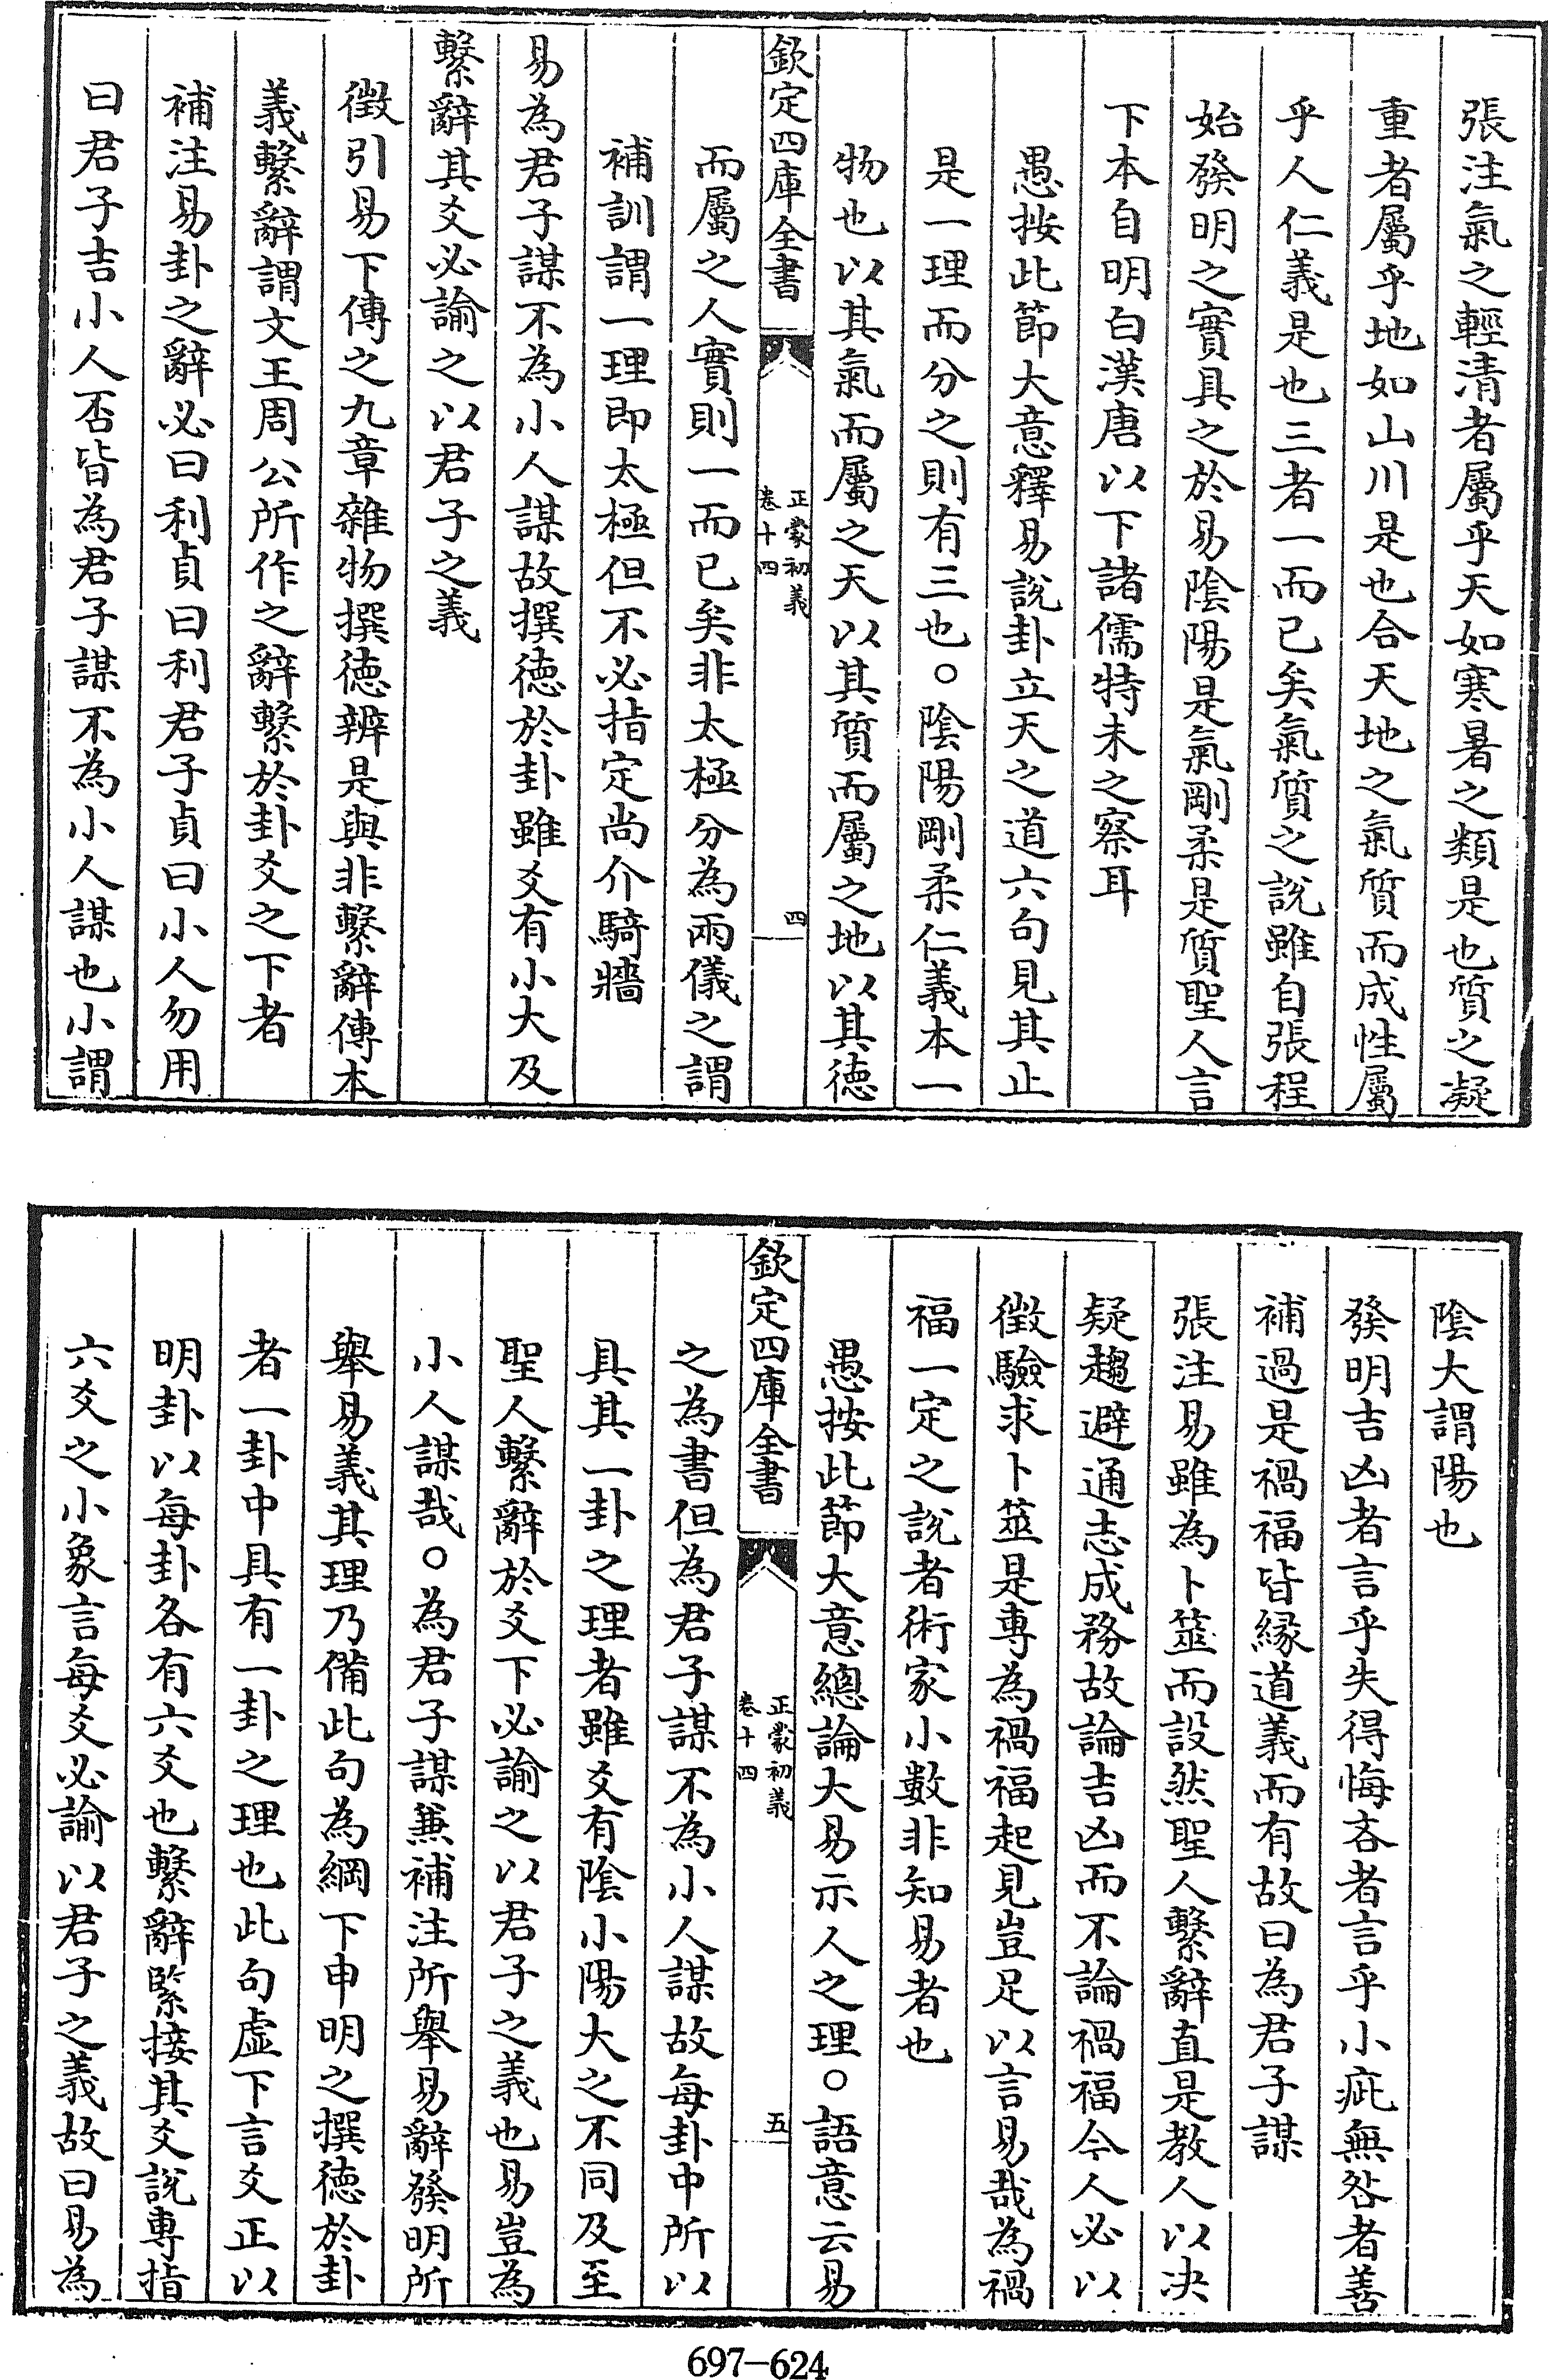 張注氣之輕清者屬乎天如寒暑之類是也質之凝
重者屬乎地如山川是也合天地之氣質而成性屬
乎人仁義是也三者一而已矣氣質之說雖自張程
始發明之實具之於易陰陽是氣剛柔是質聖人言
下本自明白漢唐以下諸儒特未之察耳
愚按此節大意釋易說卦立天之道六句見其止
是一理而分之則有三也○陰陽剛柔仁義本一
物也以其氣而屬之天以其質而屬之地以其德
欽定四庫全書
正蒙初義
卷十四
四
而屬之人實則一而已矣非太極分為兩儀之謂
補訓謂一理即太極但不必指定尚介騎牆
易為君子謀不為小人謀故撰德於卦雖爻有小大及
繫辭其爻必諭之以君子之義
徵引易下傳之九章雜物撰德辨是與非繫辭傳本
義繫辭謂文王周公所作之辭繫於卦爻之下者
補注易卦之辭必曰利貞曰利君子貞曰小人勿用
曰君子吉小人否皆為君子謀不為小人謀也小謂
陰大謂陽也
發明吉凶者言乎失得悔吝者言乎小疵無咎者善
補過是禍福皆縁道義而有故曰為君子謀
張注易雖為卜筮而設然聖人繫辭直是教人以决
疑趨避通志成務故論吉凶而不論禍福今人必以
徵驗求卜筮是專為禍福起見豈足以言易哉為禍
福一定之說者術家小數非知易者也
愚按此節大意總論大易示人之理○語意云易
欽定四庫全書
正蒙初義
卷十四
五
之為書但為君子謀不為小人謀故每卦中所以
具其一卦之理者雖爻有陰小陽大之不同及至
聖人繫辭於爻下必諭之以君子之義也易豈為
小人謀哉○為君子謀兼補注所舉易辭發明所
舉易義其理乃備此句為綱下申明之撰德於卦
者一卦中具有一卦之理也此句虛下言爻正以
明卦以每卦各有六爻也繫辭緊接其爻說專指
六爻之小象言每爻必諭以君子之義故曰易為
697-624